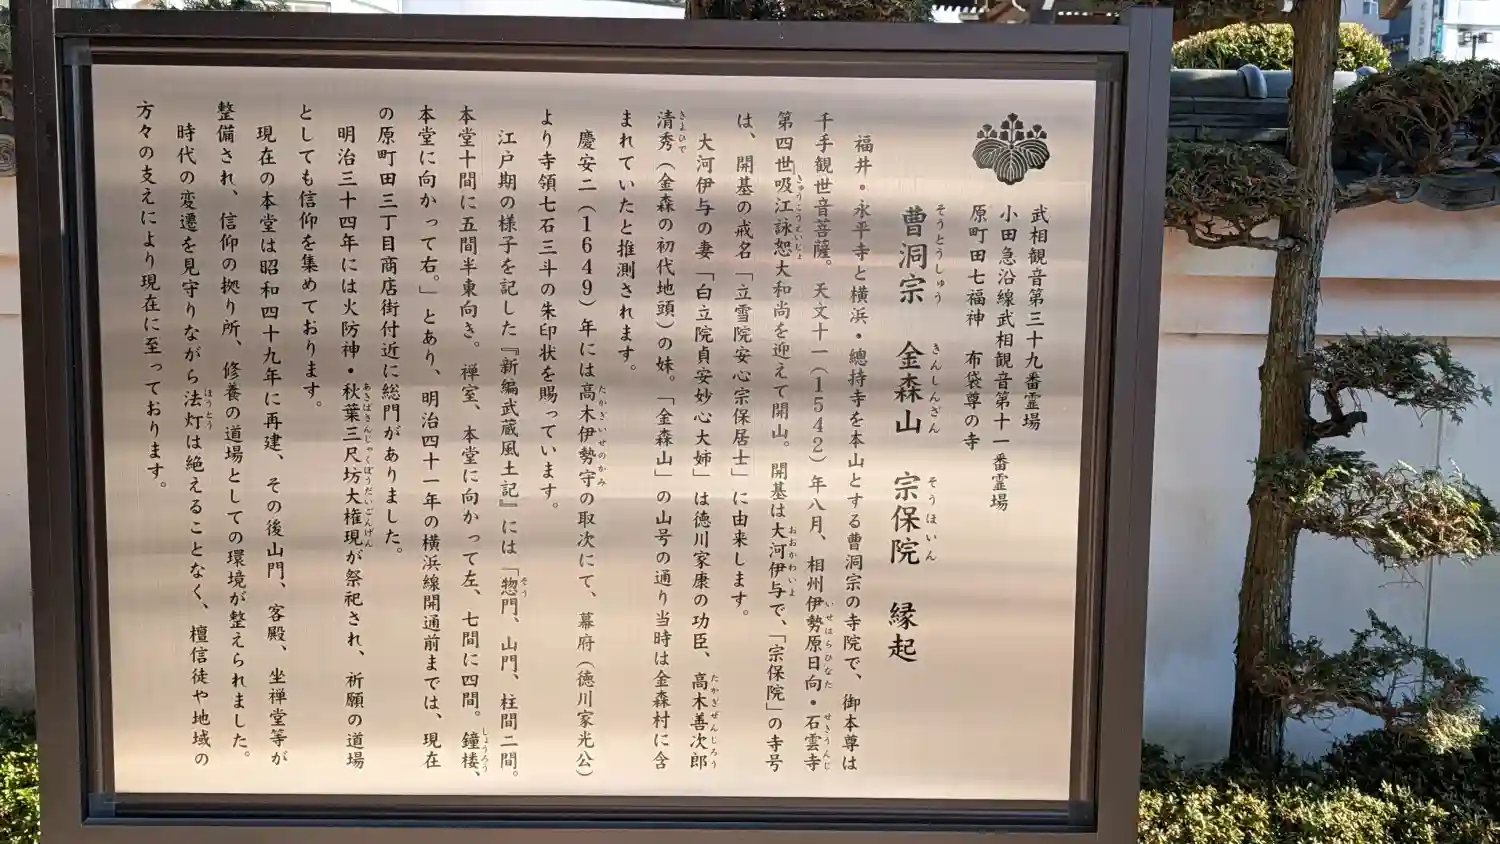 武相観音第三十九番霊場
小田急沿線武相観音第十一番霊場
原町田七福神　布袋尊の寺
曹洞宗　金森山　宗保院　縁起
そうとうしゅう　きんしんざん　そうほいん
福井・永平寺と横浜・總持寺を本山とする曹洞宗の寺院で、御本尊は
千手観世音菩薩。天文十一（1542）年八月、相州伊勢原日向・石雲寺
いせはらひなた　せきうんじ
第四世吸江詠恕大和尚を迎えて開山。開基は大河伊与で、「宗保院」の寺号
きゅうこうえいじょ　おおかわいよ
は、開基の戒名「立雪院安心宗保居士」に由来します。
大河伊与の妻「白立院貞安妙心大姉」は徳川家康の功臣、高木善次郎
たかぎぜんじろう
清秀（金森の初代地頭）の妹。「金森山」の山号の通り当時は金森村に含
きよひで
まれていたと推測されます。
慶安二（1649）年には高木伊勢守の取次にて、幕府（徳川家光公）
たかぎいせのかみ
より寺領七石三斗の朱印状を賜っています。
江戸期の様子を記した『新編武蔵風土記』には「惣門、山門、柱間二間。
そう
本堂十間に五間半東向き。禅室、本堂に向かって左、七間に四間。鐘楼、
しょうろう
本堂に向かって右。」とあり、明治四十一年の横浜線開通前までは、現在
の原町田三丁目商店街付近に総門がありました。
明治三十四年には火防神・秋葉三尺坊大権現が祭祀され、祈願の道場
あきばさんじゃくぼうだいごんげん
としても信仰を集めております。
現在の本堂は昭和四十九年に再建、その後山門、客殿、坐禅堂等が
整備され、信仰の拠り所、修養の道場としての環境が整えられました。
時代の変遷を見守りながら法灯は絶えることなく、檀信徒や地域の
ほうとう
方々の支えにより現在に至っております。